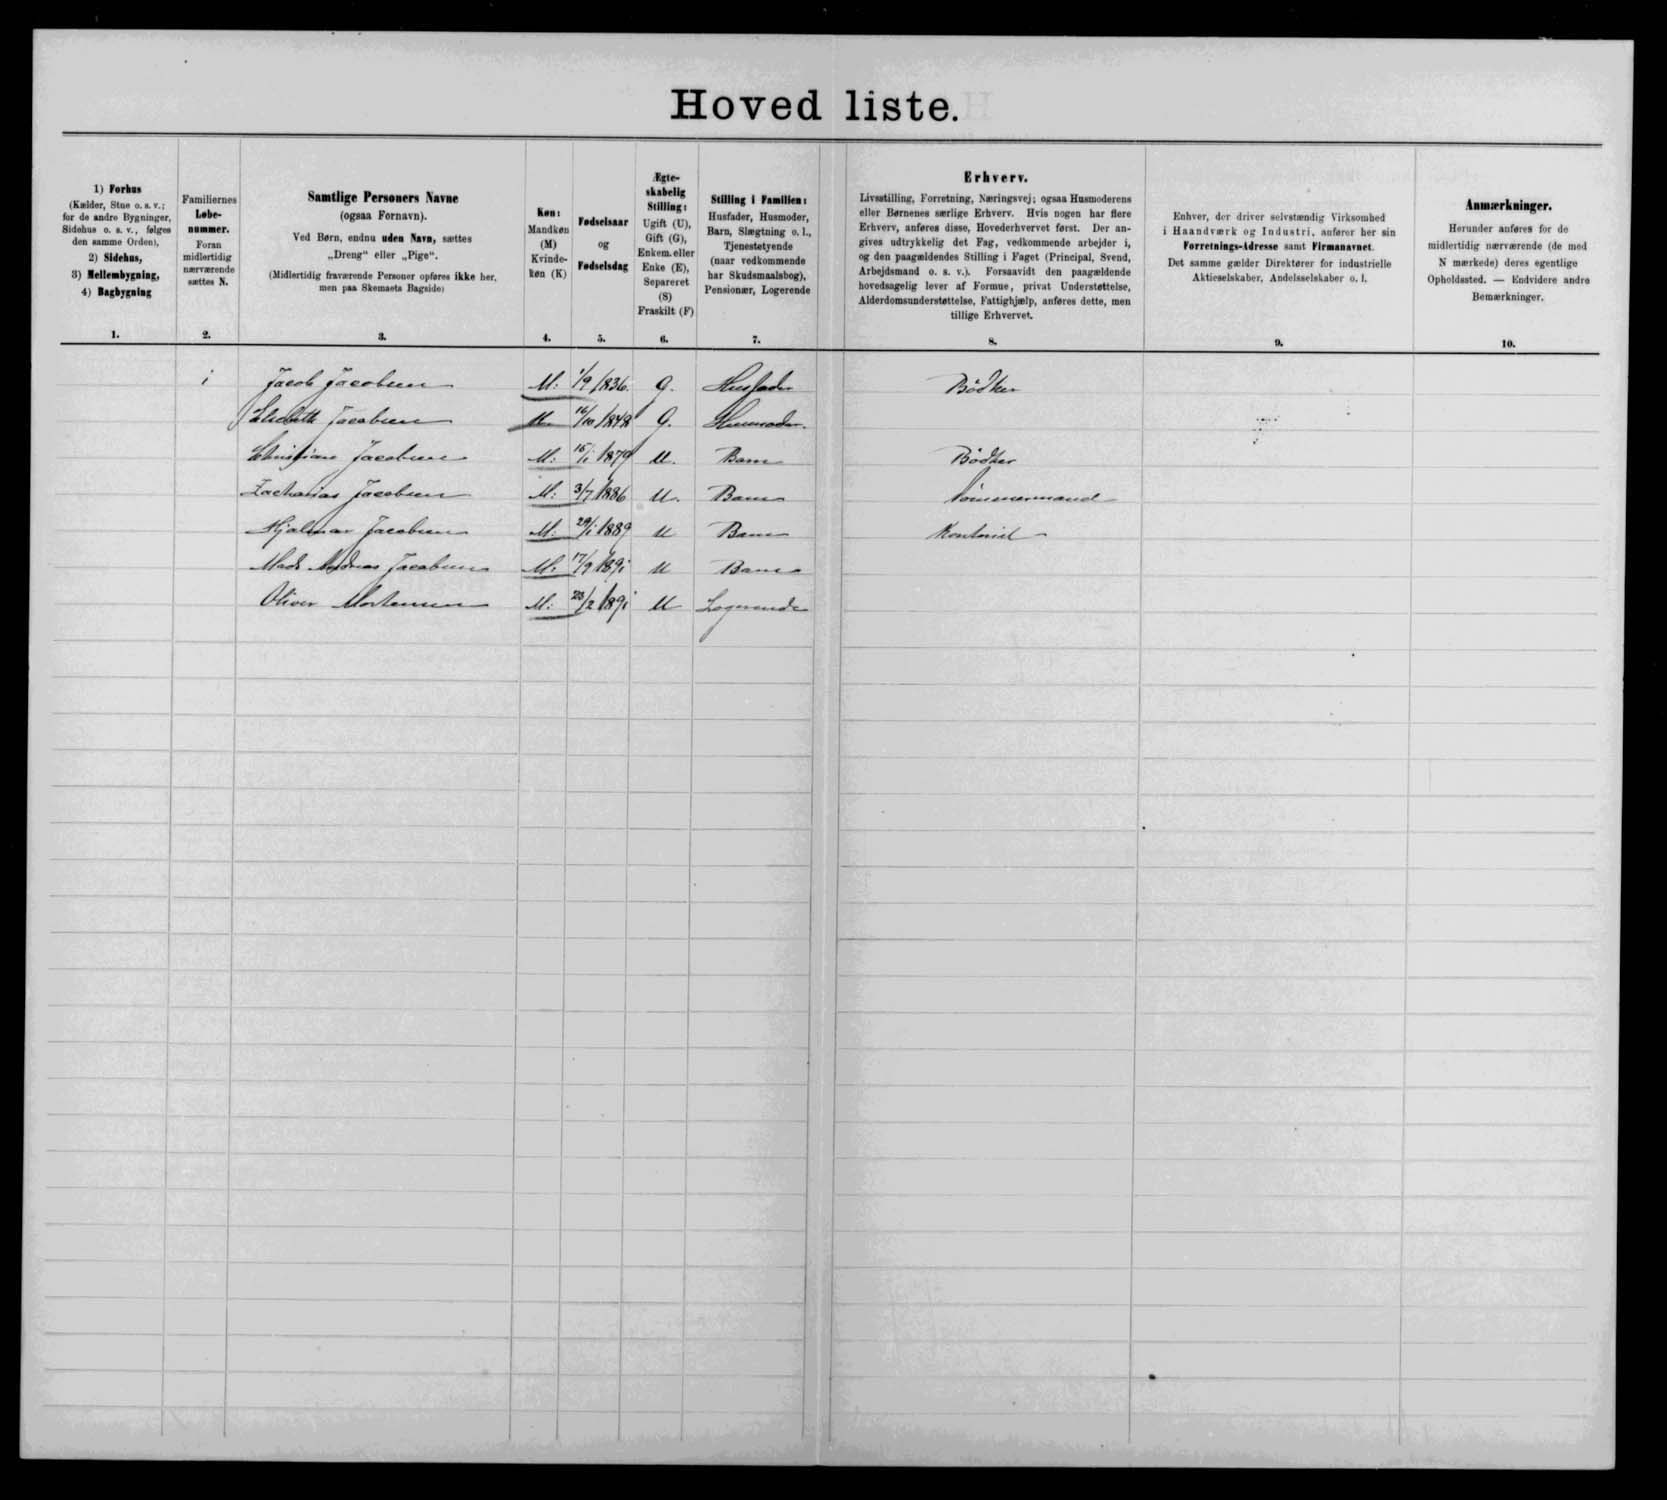 Hovedliste.
1) Forhus
(Kælder, Stue o. s. v.;
for de andre Bygninger,
Sidehus o. s. v., følges
den samme Orden),
2) Sidehus,
3) Mellembygning,
4) Bagbygning
1.
Familiernes
Løbe-
nummer.
Foran
midlertidig
nærværende
sættes N.
2.
Samtlige Personers Navne
(ogsaa Fornavn).
Ved Børn, endnu uden Navn, sættes
„Dreng“ eller „Pige“.
(Midlertidig fraværende Personer opføres ikke her,
men paa Skemaets Bagside)
3.
Køn:
Mandkøn
(M)
Kvinde-
køn (K)
4.
Fødselsaar
og
Fødselsdag
5.
Ægte-
skabelig
Stilling:
Ugift (U),
Gift (G),
Enkem. eller
Enke (E),
Separeret
(S)
Fraskilt (F)
6.
Stilling i Familien:
Husfader, Husmoder,
Barn, Slægtning o. l.,
Tjenestetyende
(naar vedkommende
har Skudsmaalsbog),
Pensionær, Logerende
7.
Erhverv.
Livsstilling, Forretning, Næringsvej; ogsaa Husmoderens
eller Børnenes særlige Erhverv. Hvis nogen har flere
Erhverv, anføres disse, Hovederhvervet først. Der an-
gives udtrykkelig det Fag, vedkommende arbejder i,
og den paagældendes Stilling i Faget (Principal, Svend,
Arbejdsmand o. s. v.). Forsaavidt den paagældende
hovedsagelig lever af Formue, privat Understøttelse,
Alderdomsunderstøttelse, Fattighjælp, anføres dette, men
tillige Erhvervet.
8.
Enhver, der driver selvstændig Virksomhed
i Haandværk og Industri, anfører her sin
Forretnings-Adresse samt Firmanavnet.
Det samme gælder Direktører for industrielle
Aktieselskaber, Andelsselskaber o. l.
9.
Anmærkninger.
Herunder anføres for de
midlertidig nærværende (de med
N mærkede) deres egentlige
Opholdssted. — Endvidere andre
Bemærkninger.
10.
1 Jacob Jacobsen M: 1/9 1836. G. Husfader Bödker
Elisabeth Jacobsen 16/10 1848 G. Husmoder.
Christian Jacobsen M: 15/1 1879 U. Barn Bödker
Zacharias Jacobsen M: 3/7 1886 U. Barn Tömmermand
Hjalmar Jacobsen M: 29/1 1889 U Barn Kontorist
Mads Andreas Jacobsen M: 17/9 1891 U Barn
Oliver Mortensen M: 23/2 1891 U Logerende